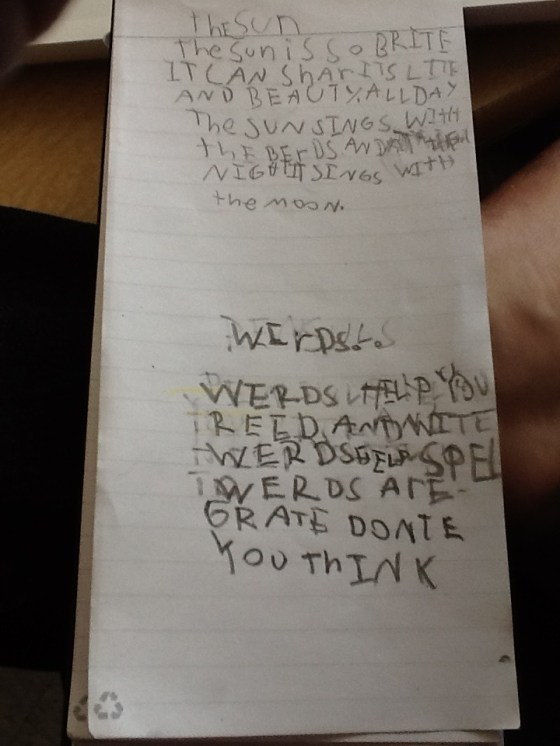 thE SUN
The Sun is So BRITE
IT CAN ShAr ITS LITE
AND BEAUTY. ALL DAY
The SUN SINGS WITH
thE BErDS AND AT
NIGHT IT SINGS WITH
the MOON.
WErDS...
WERDS HELP YOU
REED AND WITE
WERDS HELP SPEL
WERDS ArE
GRATE DONTE
YOU ThINK